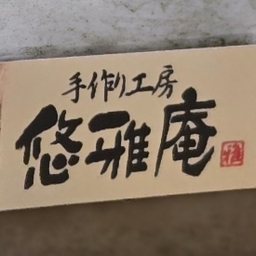 手作り工房
悠雅庵
雅